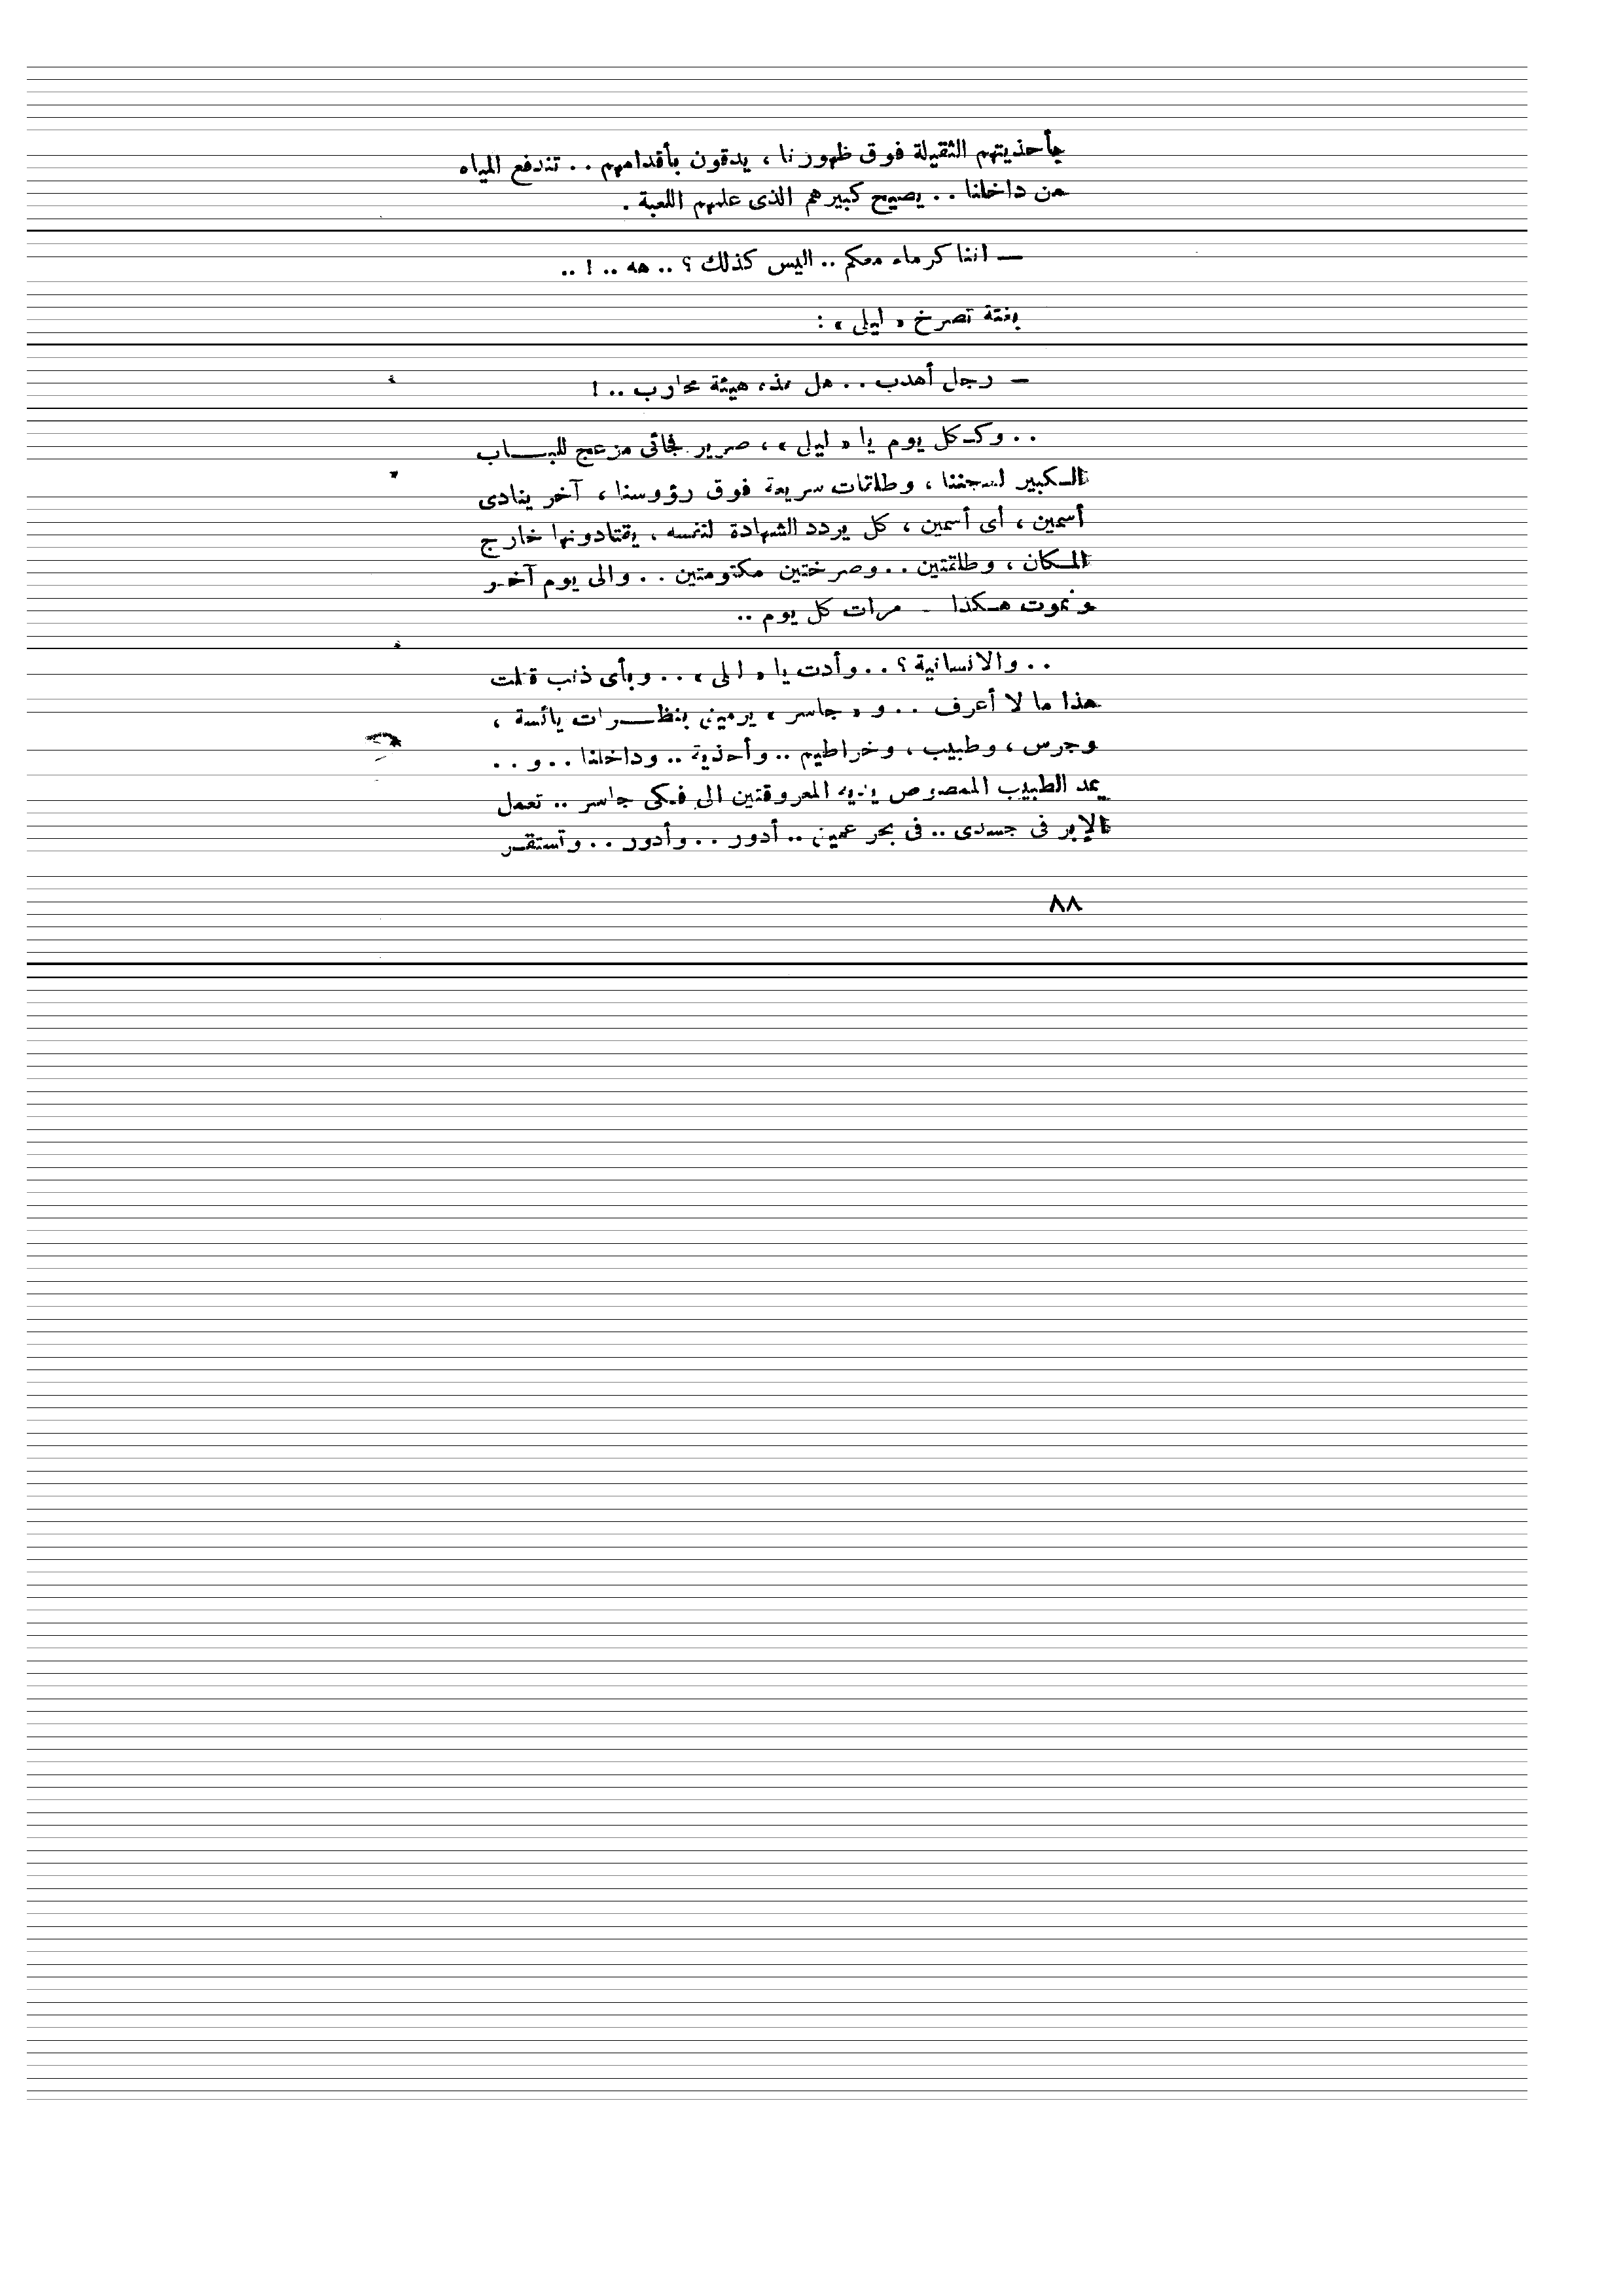 بأحذيتهم الثقيلة فوق ظهورنا ، يدقون بأقدامهم . . تندفع المياه
من داخلنا . . يصيح كبيرهم الذى علمهم اللعبة .
— اننا كرماء معكم .. اليس كذلك ؟ .. هه .. ! ..
بغتة تصرخ « ليلى » :
— رجل أهدب . . هل هذه هيئة محارب .. !
. . وككل يوم يا « ليلى » ، صرير فجائى مزعج للبـــاب
الـكبير لسجننا ، وطلقات سريعة فوق رؤوسنا ، آخر ينادى
أسمين ، أى أسمين ، كل يردد الشهادة لنفسه ، يقتادونها خارج
المـكان ، وطلقتين . . وصرختين مكتومتين . . والى يوم آخـر
ونموت هـكذا - مرات كل يوم ..
. . والانسانية ؟ . . وأدت يا « ليلى » . . وبأى ذنب قتلت
هذا ما لا أعرف . . و « جاسر » يرمينى بنظـــرات يائسة ،
وجرس ، وطبيب ، وخراطيم .. وأحذية .. وداخلنا . . و . .
يمد الطبيب الممصوص يديه المعروقتين الى فـكى جاسر .. تعمل
الإبر فى جسدى .. فى بحر عميق .. أدور . . وأدور . . وتستقـر
٨٨